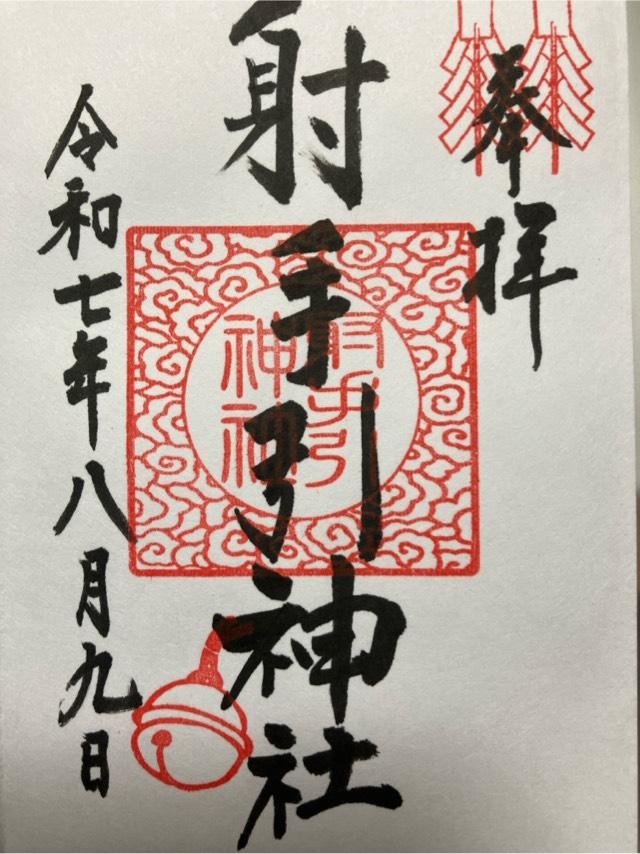 奉拝
射手引神社
射手引
神社
令和七年八月九日